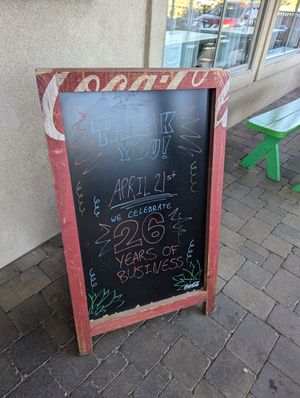 Coca-Cola
THANK
YOU!
APRIL 21st
WE CELEBRATE
26
YEARS OF
BUSINESS
Coca-Cola